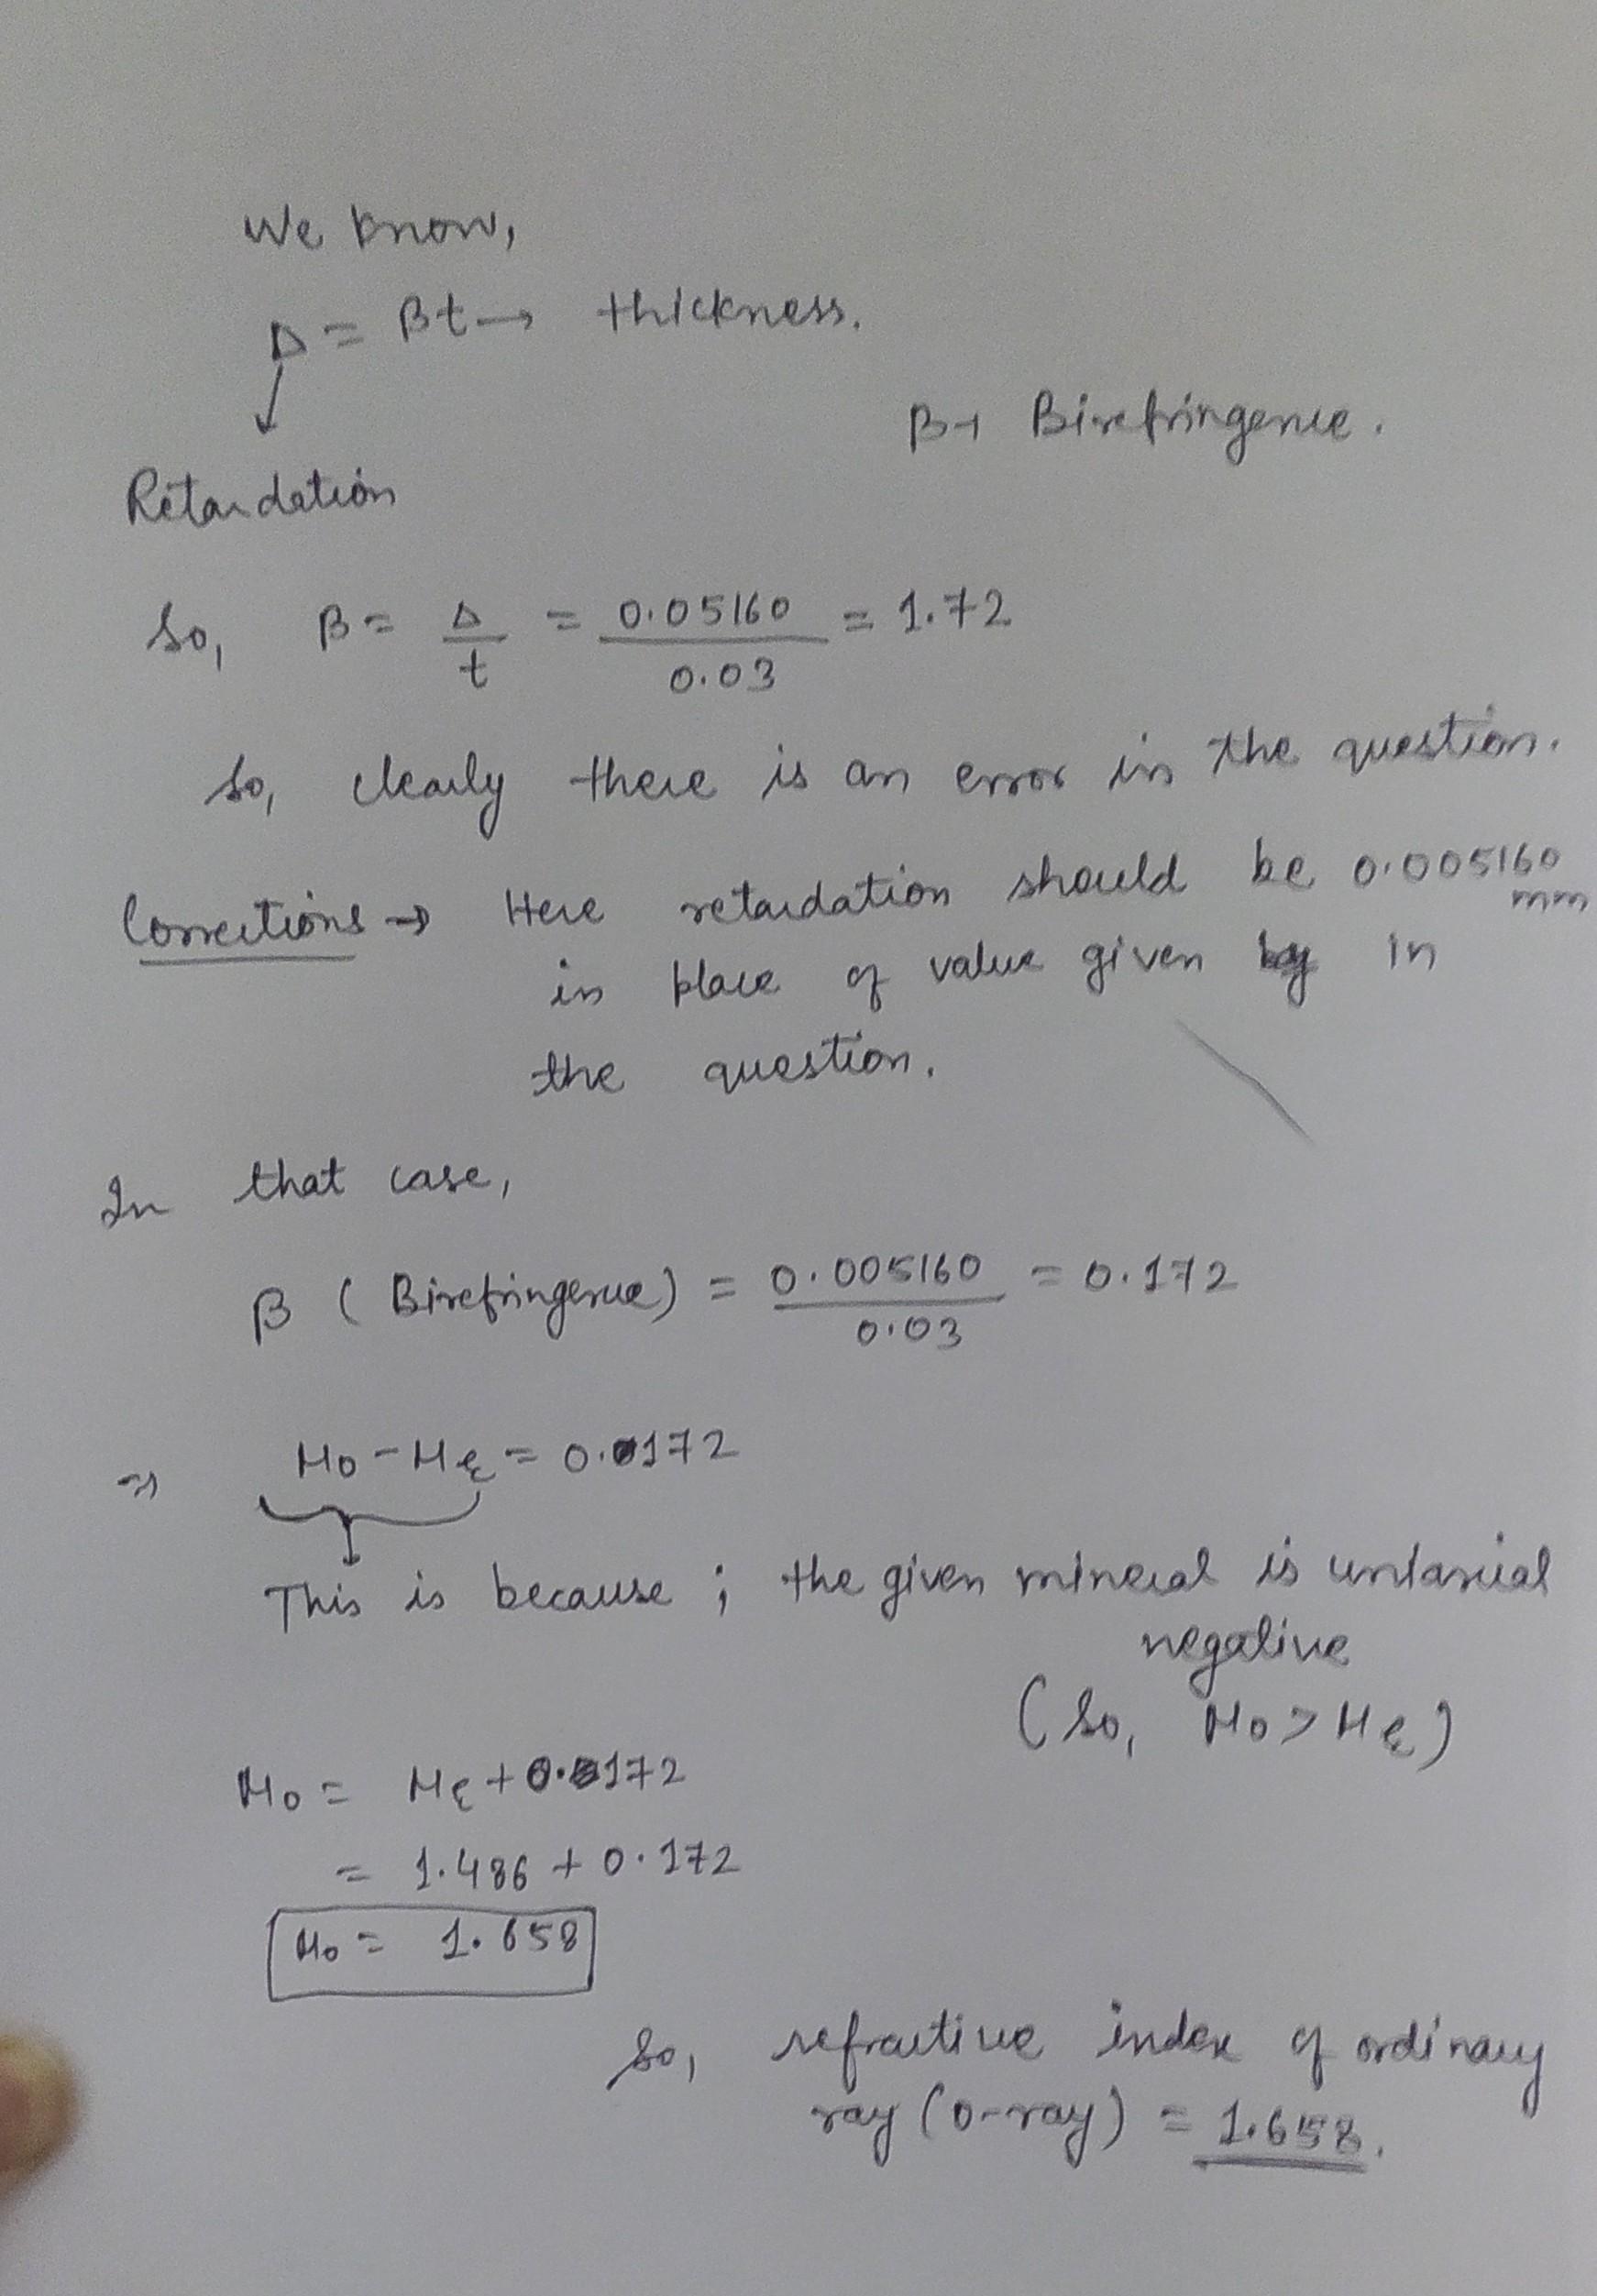 We know,
Δ = βt → thickness.
β → Birefringence.
Retardation
So, β = Δ/t = 0.05160/0.03 = 1.72
So, clearly there is an error in the question.
Corrections → Here retardation should be 0.005160 mm
in place of value given in
the question.
In that case,
β (Birefringence) = 0.005160/0.03 = 0.172
⇒ μo - με = 0.172
This is because ; the given mineral is uniaxial
negative
(So, μo > με)
μo = με + 0.172
= 1.486 + 0.172
μo = 1.658
So, refractive index of ordinary
ray (o-ray) = 1.658.